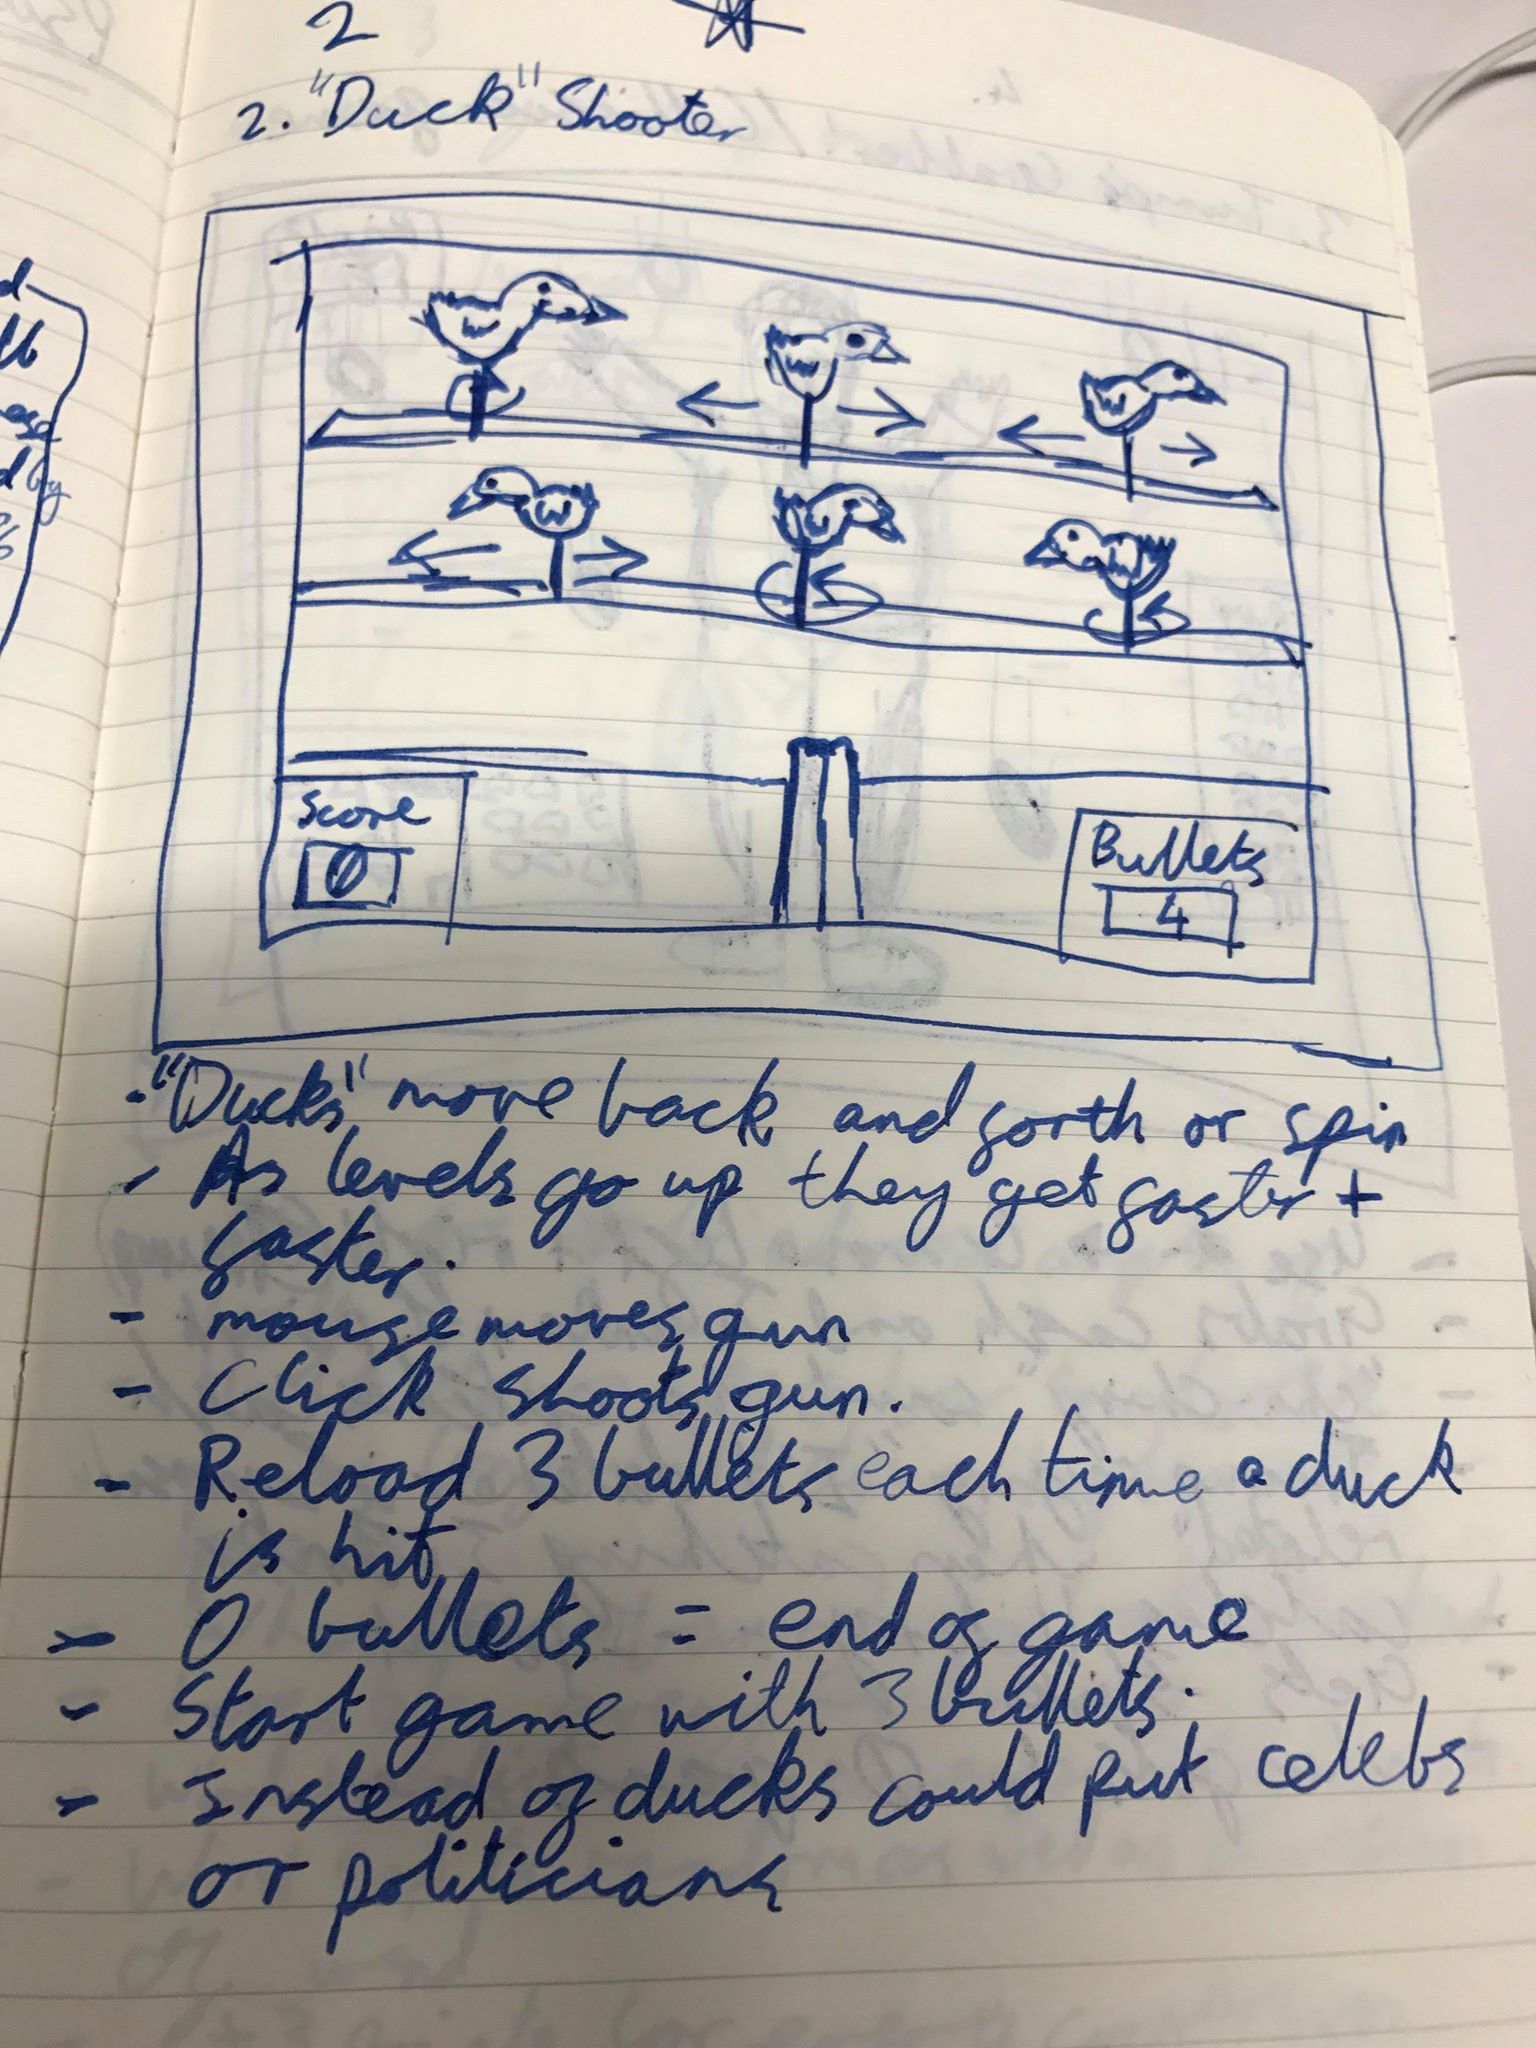 2
2. "Duck" Shooter
Score
0
Bullets
4
- "Ducks" move back and forth or spin
- As levels go up they get faster +
faster.
- mouse moves gun
- Click shoots gun.
- Reload 3 bullets each time a duck
is hit
- 0 bullets = end of game
- Start game with 3 bullets.
- Instead of ducks could put celebs
or politicians